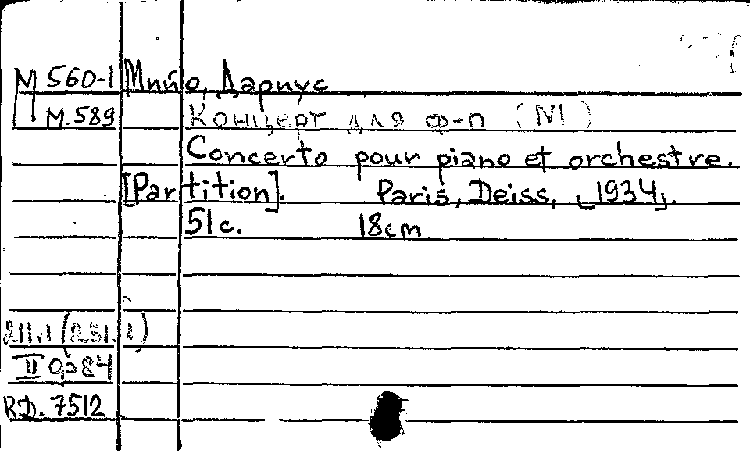 М 560-1 Мийо, Дариус
М.589 Концерт для ф-п (№1)
Concerto pour piano et orchestre.
[Partition]. Paris, Deiss, [1934].
51c. 18cm
II 0384
R.D. 7512